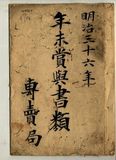 明治三十六年
年末賞與書類
專賣局